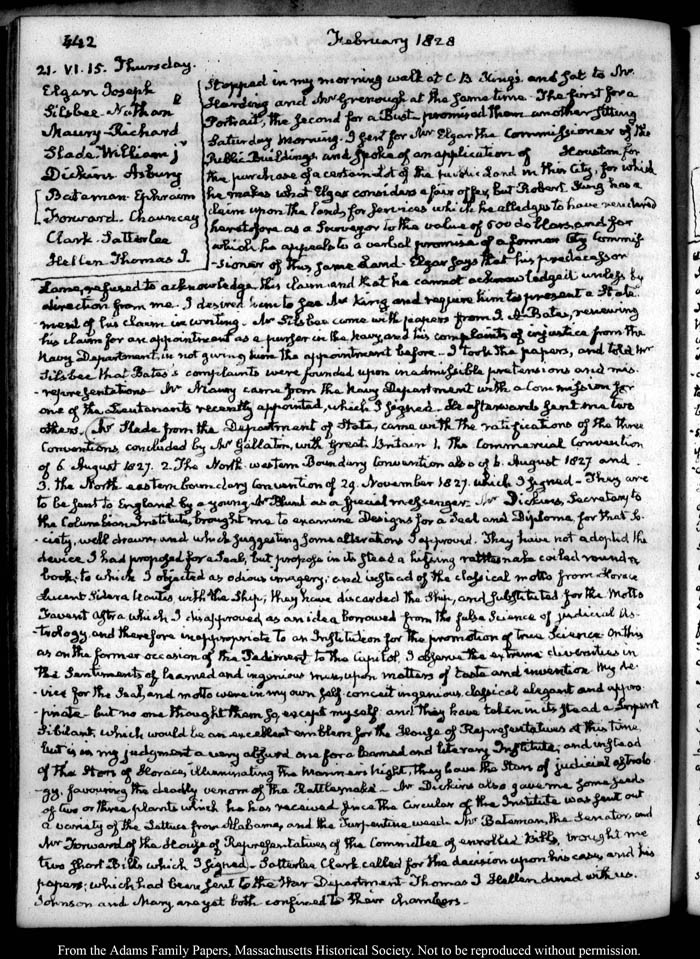 442
February 1828
21. VI.15. Thursday.
Elgar Joseph
Silsbee Nathan
Maury-Richard
Slade William jr
Dickins Asbury
Bateman Ephraim
Forward. Chauncey
Clark. Satterlee
Hellen Thomas J.
Stopped in my morning walk at C. B. King's and sat to Mr
Harding and Mr Grenough at the same time. The first for a
Portrait, the second for a Bust. promised them another sitting
Saturday Morning. I sent for Mr Elgar the Commissioner of the
Public Buildings, and spoke of an application of Houston for
the purchase of a certain Lot of the public Land in this City, for which
he makes what Elgar considers a fair offer, but Robert King has a
claim upon the land, for services which he alledges to have rendered
heretofore as a Surveyor to the value of 500 dollars, and for
which he appeals to a verbal promise of a former City Commis-
-sioner of this same Land. Elgar says that his predecessor
Lane, refused to acknowledge this claim and that he cannot acknowledge it unless by
direction from me. I desired him to see Mr King and require him to present a State-
ment of his claim in writing. Mr Silsbee came with papers from J. A. Bates, renewing
his claim for an appointment as a purser in the Navy, and his complaints of injustice from the
Navy Department, in not giving him the appointment before. I took the papers, and told Mr
Silsbee that Bates's complaints were founded upon inadmissible pretensions and mis-
-representations. Mr Maury came from the Navy Department with a Commission for
one of the Lieutenants recently appointed, which I signed. He afterwards sent me two
others. Mr Slade from the Department of State, came with the ratifications of the three
Conventions, concluded by Mr Gallatin, with Great Britain 1. The Commercial Convention
of 6. August 1827. 2. The North-western Boundary Convention also of 6. August 1827 and
3. the North eastern boundary Convention of 29. November 1827. which I signed. They are
to be sent to England by a young Mr Blunt as a special messenger. Mr Dickins, Secretary to
the Columbian Institute, brought me to examine Designs for a Seal and Diploma, for that So-
-ciety, well drawn, and which suggesting some alterations I approved. They have not adopted the
device I had proposed for a Seal, but propose in its stead a hissing rattlesnake coiled round a
book; to which I objected as odious imagery; and instead of the classical motto from Horace
Lucent Sidera Nautis with the Ship; they have discarded the Ship, and substituted for the Motto
Favent Astra which I disapproved as an idea borrowed from the false Science of judicial As-
-trology and therefore inappropriate to an Institution for the promotion of true Science. On this
as on the former occasion of the Pediment to the Capitol, I observe the extreme diversities in
the Sentiments of learned and ingenious men, upon matters of taste and invention. My de-
-vice for the Seal, and motto were in my own self-conceit ingenious, classical elegant and appro-
-priate. but no one thought them so, except myself. and they have taken in its stead a Serpent
Sibilant, which would be an excellent emblem for the House of Representatives at this time,
but is in my judgment a very absurd one for a learned and literary Institute; and instead
of the Stars of Horace, illuminating the Mariners Night, they have the Stars of judicial astrolo-
-gy, favouring the deadly venom of the Rattlesnake. Mr Dickins also gave me some seeds
of two or three plants which he has received since the Circular of the Institute was sent out
a variety of the Lettuce from Alabama, and the Turpentine weed. Mr Bateman, the Senator, and
Mr Forward of the House of Representatives of the Committee of enrolled bills, brought me
two short Bills which I signed. Satterlee Clark called for the decision upon his case, and his
papers; which had been sent to the War Department. Thomas J Hellen dined with us.
Johnson and Mary are yet both confined to their chambers.
From the Adams Family Papers, Massachusetts Historical Society. Not to be reproduced without permission.